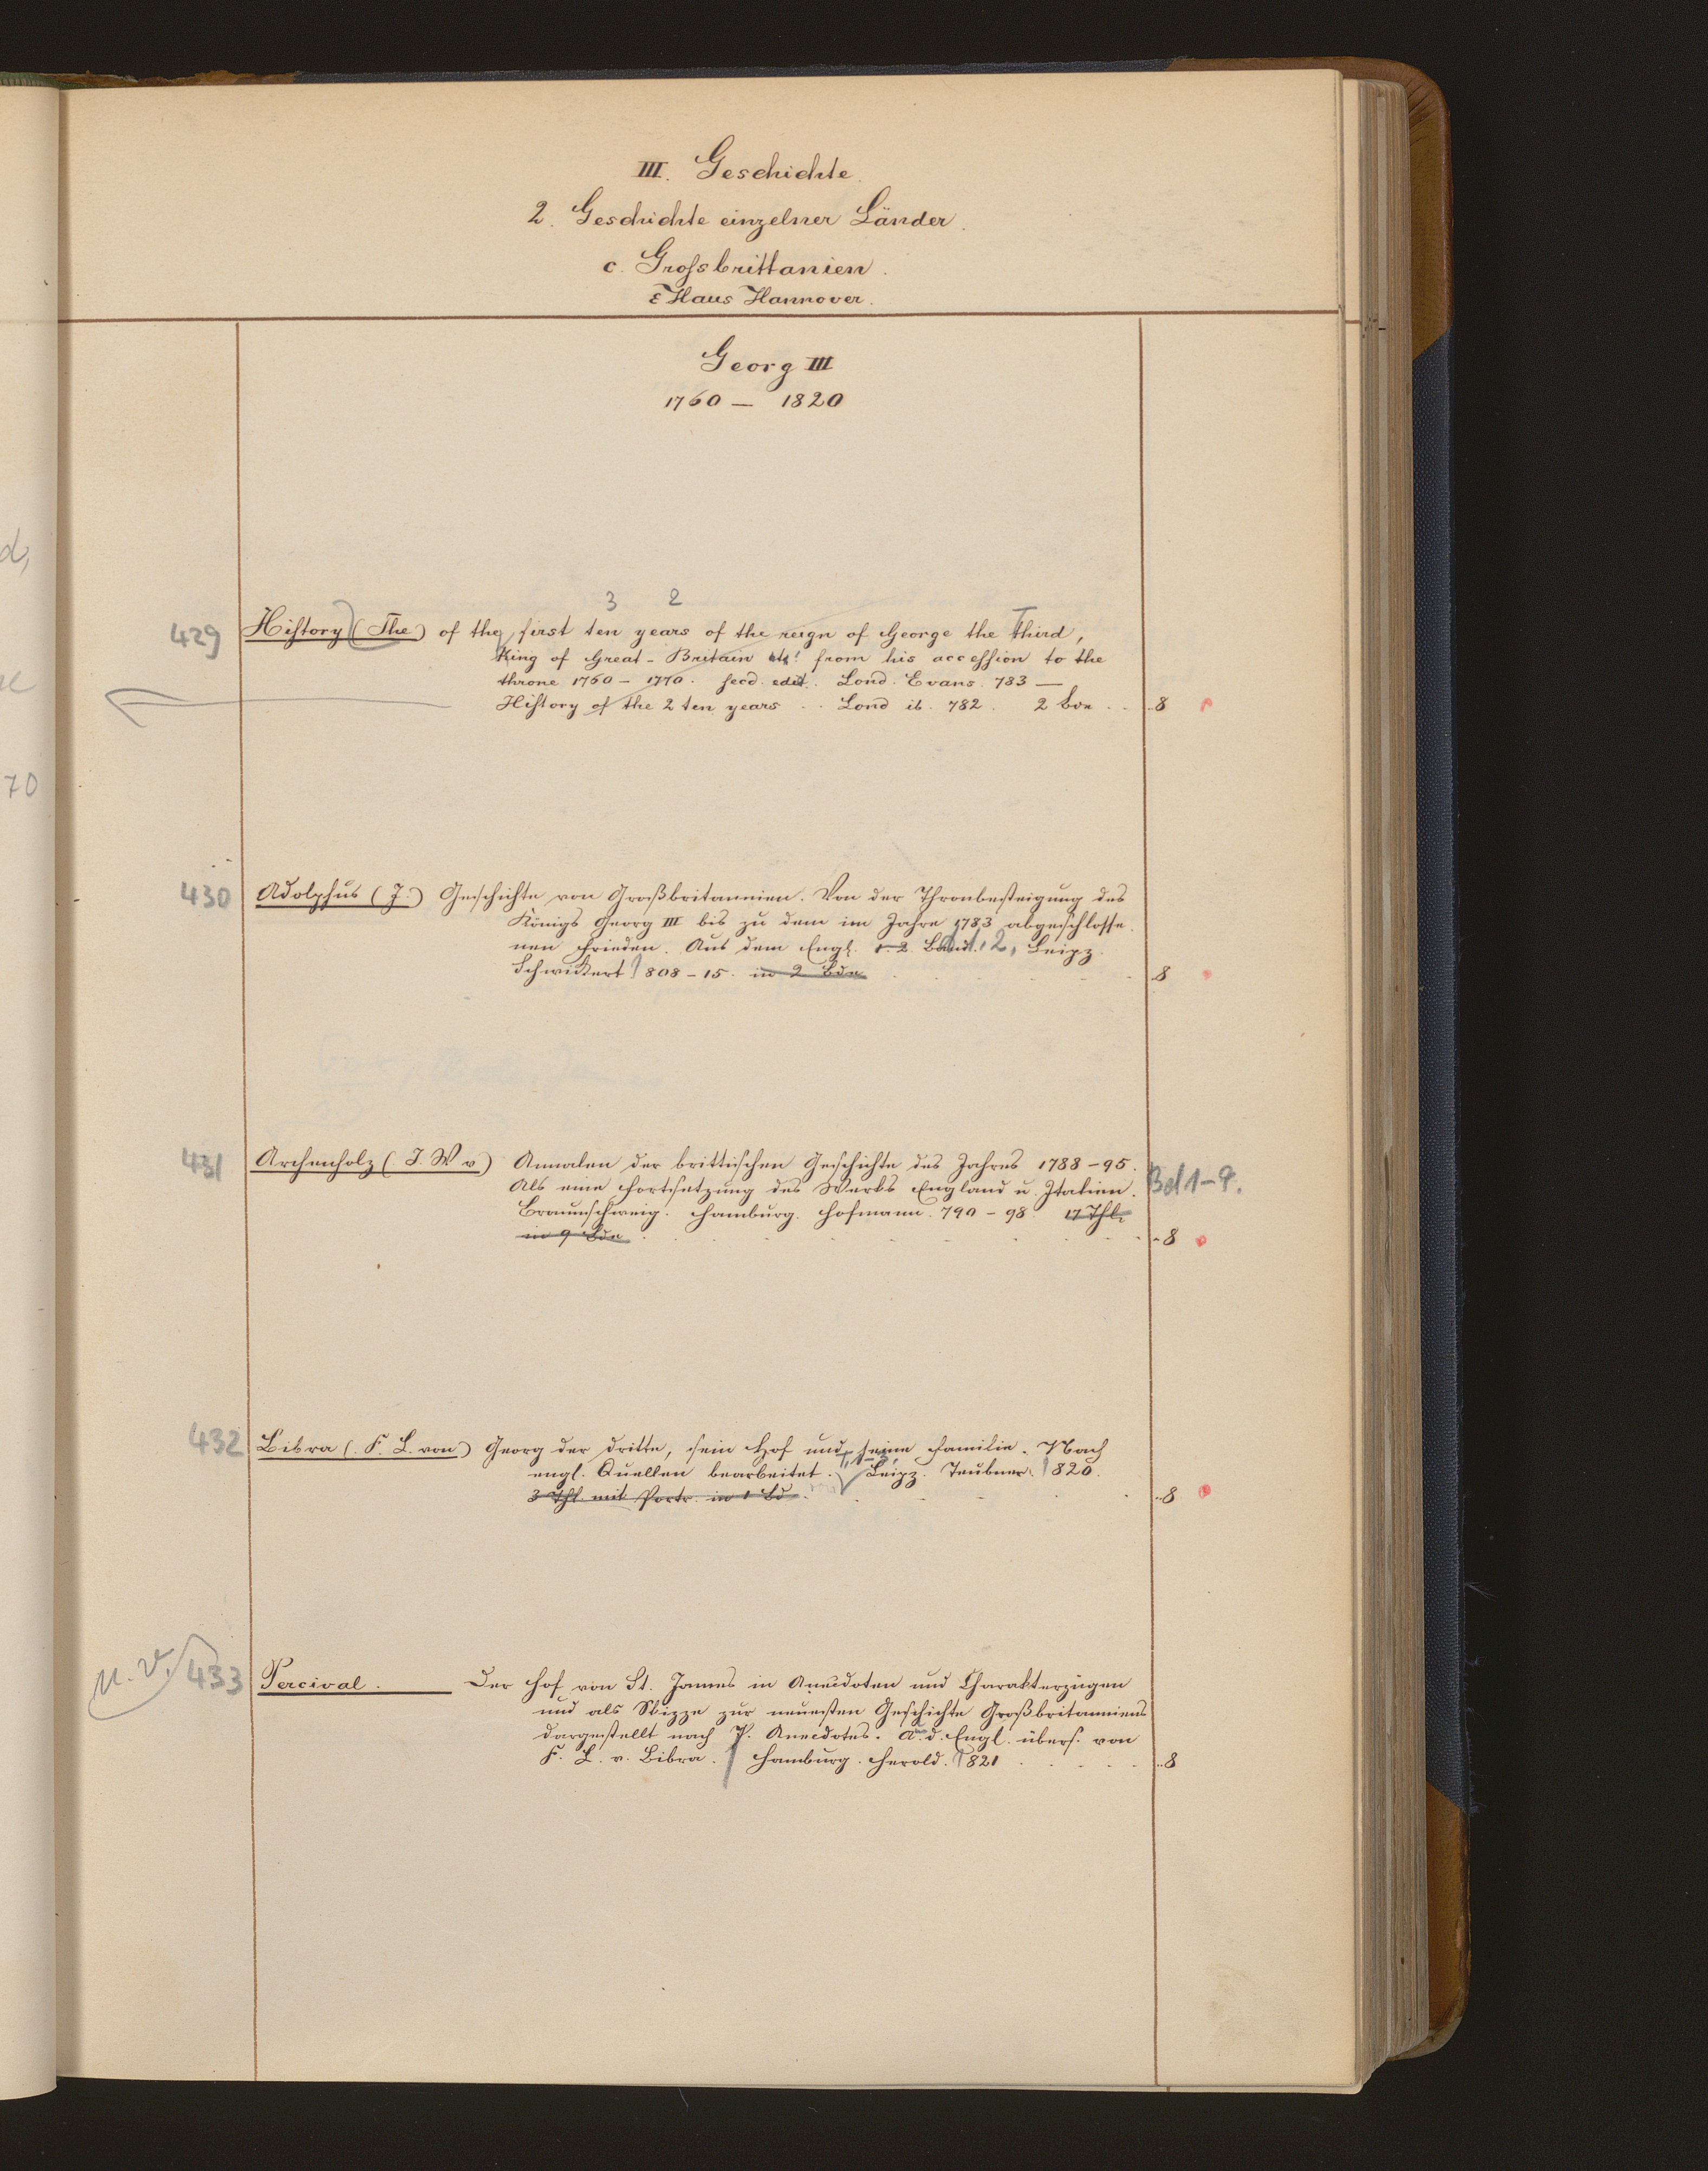 III. Geschichte.
2. Geschichte einzelner Länder.
c. Grossbrittanien.
ε Haus Hannover.
Georg III
1760 — 1820
3 2
429 History (The) of the first ten years of the reign of George the Third,
King of Great-Britain etc. from his accession to the
throne 1760 – 1770. secd. edit. Lond. Evans. 783 —
History of the 2 ten years . . Lond ib. 782. 2 Bde . . 8
430 Adolphus (J.) Geschichte von Großbritannien. Von der Thronbesteigung des
Königs Georg III bis zu dem im Jahre 1783 abgeschlosse-
nen Frieden. Aus dem Engl. 1-2 Band. 1. 2, Leipz.
Schwickert 1808 – 15. in 2 Bde 8
431 Archenholz (J. W v) Annalen der brittischen Geschichte des Jahres 1788 – 95.
Als eine Fortsetzung des Werks England u. Italien. Bd 1–9.
Braunschweig. Hamburg. Hofmann. 790 – 98. 17 Thle
in 9 Bde 8
432 Bibra (F. L. von) Georg der dritte, sein Hof und seine Familie. Nach
T. 1–3,
engl. Quellen bearbeitet. Leipz. Teubner. 1820.
3 Thl. mit Portr. in 1 Bd 8
n. v. 433 Percival. Der Hof von St. James in Anecdoten und Charakterzügen
und als Skizze zur neuesten Geschichte Großbritanniens
dargestellt nach P. Anecdotes. A. d. Engl. übers. von
F. L. v. Bibra. Hamburg. Herold. 1821 8
d,
70